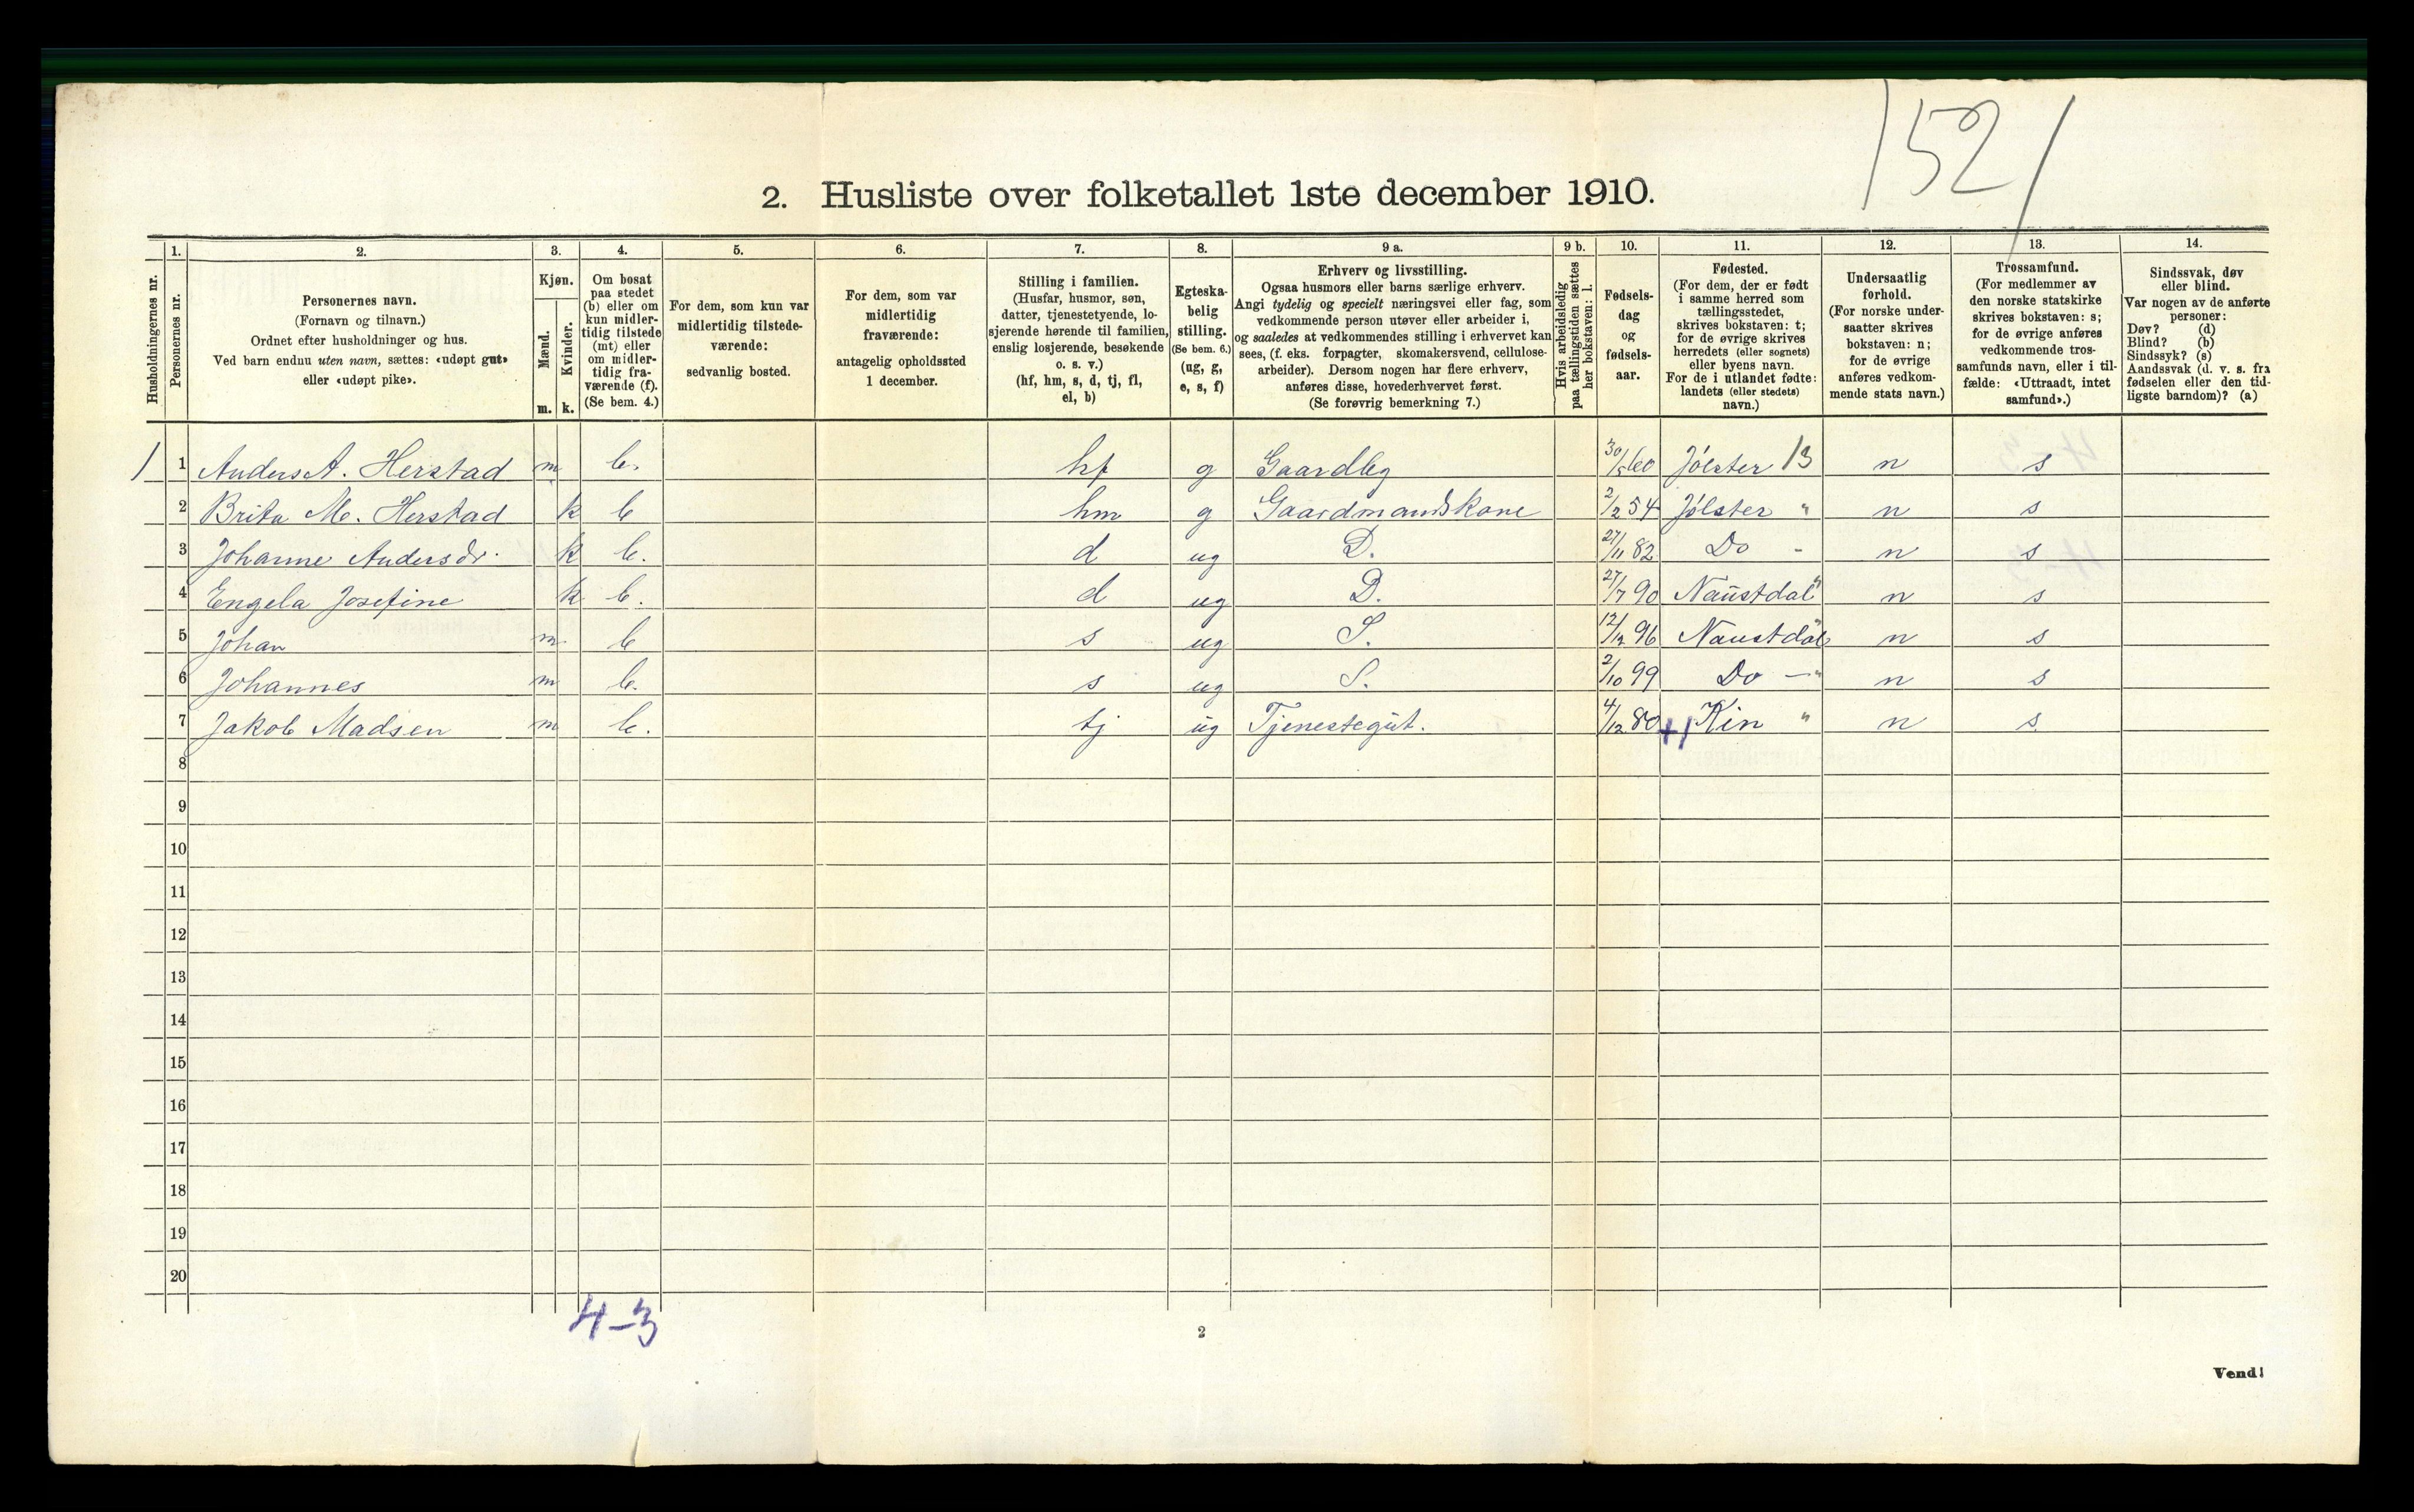 152/
2. Husliste over folketallet 1ste december 1910.
Husholdningernes nr.
1. Personernes nr.
2. Personernes navn. (Fornavn og tilnavn.) Ordnet efter husholdninger og hus. Ved barn endnu uten navn, sættes: «udøpt gut» eller «udøpt pike».
3. Kjøn. Mænd. m. Kvinder. k.
4. Om bosat paa stedet (b) eller om kun midlertidig tilstede (mt) eller om midlertidig fraværende (f). (Se bem. 4.)
5. For dem, som kun var midlertidig tilstedeværende: sedvanlig bosted.
6. For dem, som var midlertidig fraværende: antagelig opholdssted 1 december.
7. Stilling i familien. (Husfar, husmor, søn, datter, tjenestetyende, losjerende hørende til familien, enslig losjerende, besøkende o. s. v.) (hf, hm, s, d, tj, fl, el, b)
8. Egteskabelig stilling. (Se bem. 6.) (ug, g, e, s, f)
9 a. Erhverv og livsstilling. Ogsaa husmors eller barns særlige erhverv. Angi tydelig og specielt næringsvei eller fag, som vedkommende person utøver eller arbeider i, og saaledes at vedkommendes stilling i erhvervet kan sees, (f. eks. forpagter, skomakersvend, cellulosearbeider). Dersom nogen har flere erhverv, anføres disse, hovederhvervet først. (Se forøvrig bemerkning 7.)
9 b. Hvis arbeidsledig paa tællingstiden sættes her bokstaven: l.
10. Fødselsdag og fødselsaar.
11. Fødested. (For dem, der er født i samme herred som tællingsstedet, skrives bokstaven: t; for de øvrige skrives herredets (eller sognets) eller byens navn. For de i utlandet fødte: landets (eller stedets) navn.)
12. Undersaatlig forhold. (For norske undersaatter skrives bokstaven: n; for de øvrige anføres vedkommende stats navn.)
13. Trossamfund. (For medlemmer av den norske statskirke skrives bokstaven: s; for de øvrige anføres vedkommende trossamfunds navn, eller i tilfælde: «Uttraadt, intet samfund».)
14. Sindssvak, døv eller blind. Var nogen av de anførte personer: Døv? (d) Blind? (b) Sindssyk? (s) Aandssvak (d. v. s. fra fødselen eller den tidligste barndom)? (a)
1 1 Anders A. Herstad m b. hf g Gaardbg 30/5 60 Jølster 13 n s
2 Brita M. Herstad k b hm g Gaardmandskone 2/2 54 Jølster " n s
3 Johanne Andersdr. k b. d ug D. 27/11 82 Do - n s
4 Engela Josefine k b. d ug D. 27/7 90 Naustdal " n s
5 Johan m b s ug S. 12/12 96 Naustdal " n s
6 Johannes m b. s ug S. 2/10 99 Do —" n s
7 Jakob Madsen m b. tj ug Tjenestegut. 4/12 80 +1 Kin " n s.
8
9
10
11
12
13
14
15
16
17
18
19
20
4-3
2
Vend!